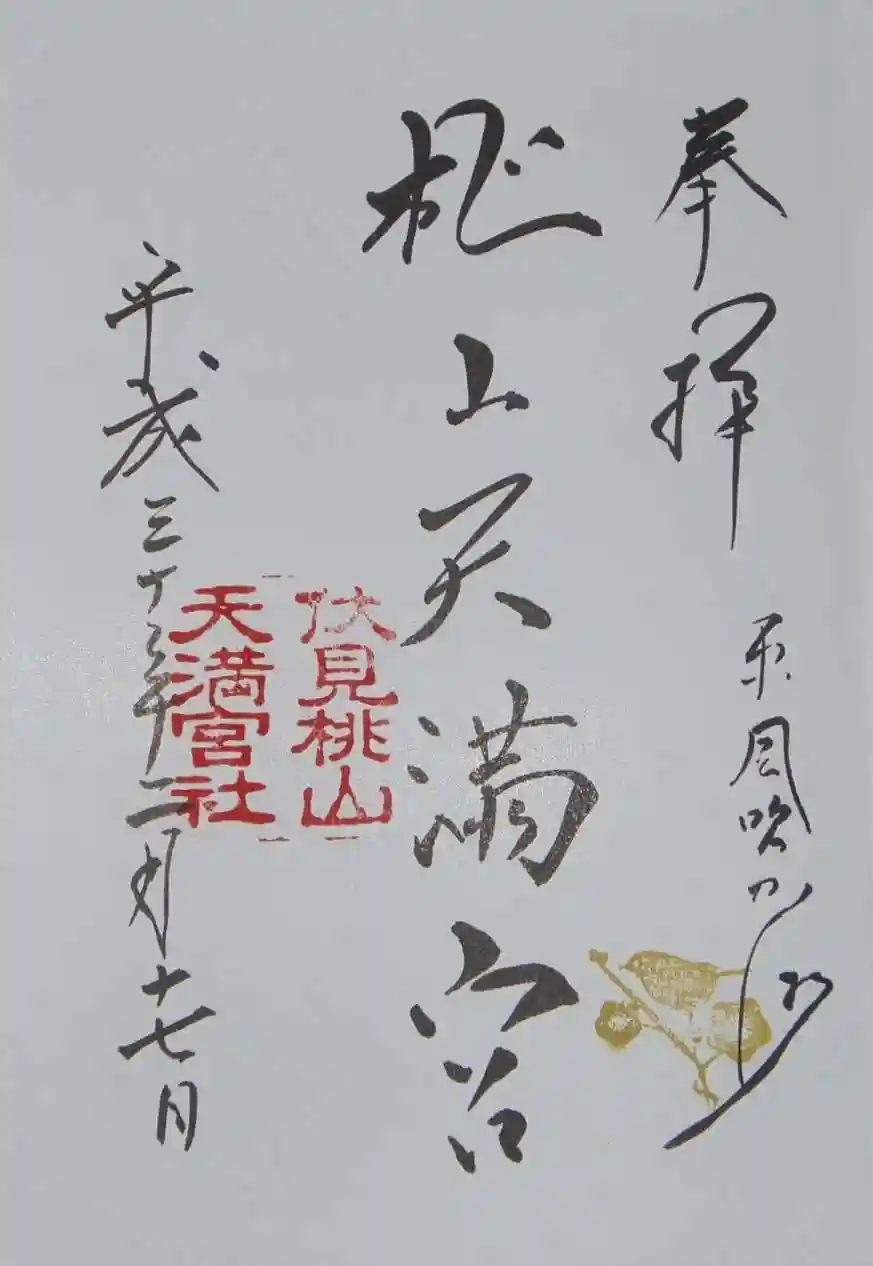 奉拝　東風吹かば
桃山天満宮
伏見桃山
天満宮社
平成三十年二月十七日